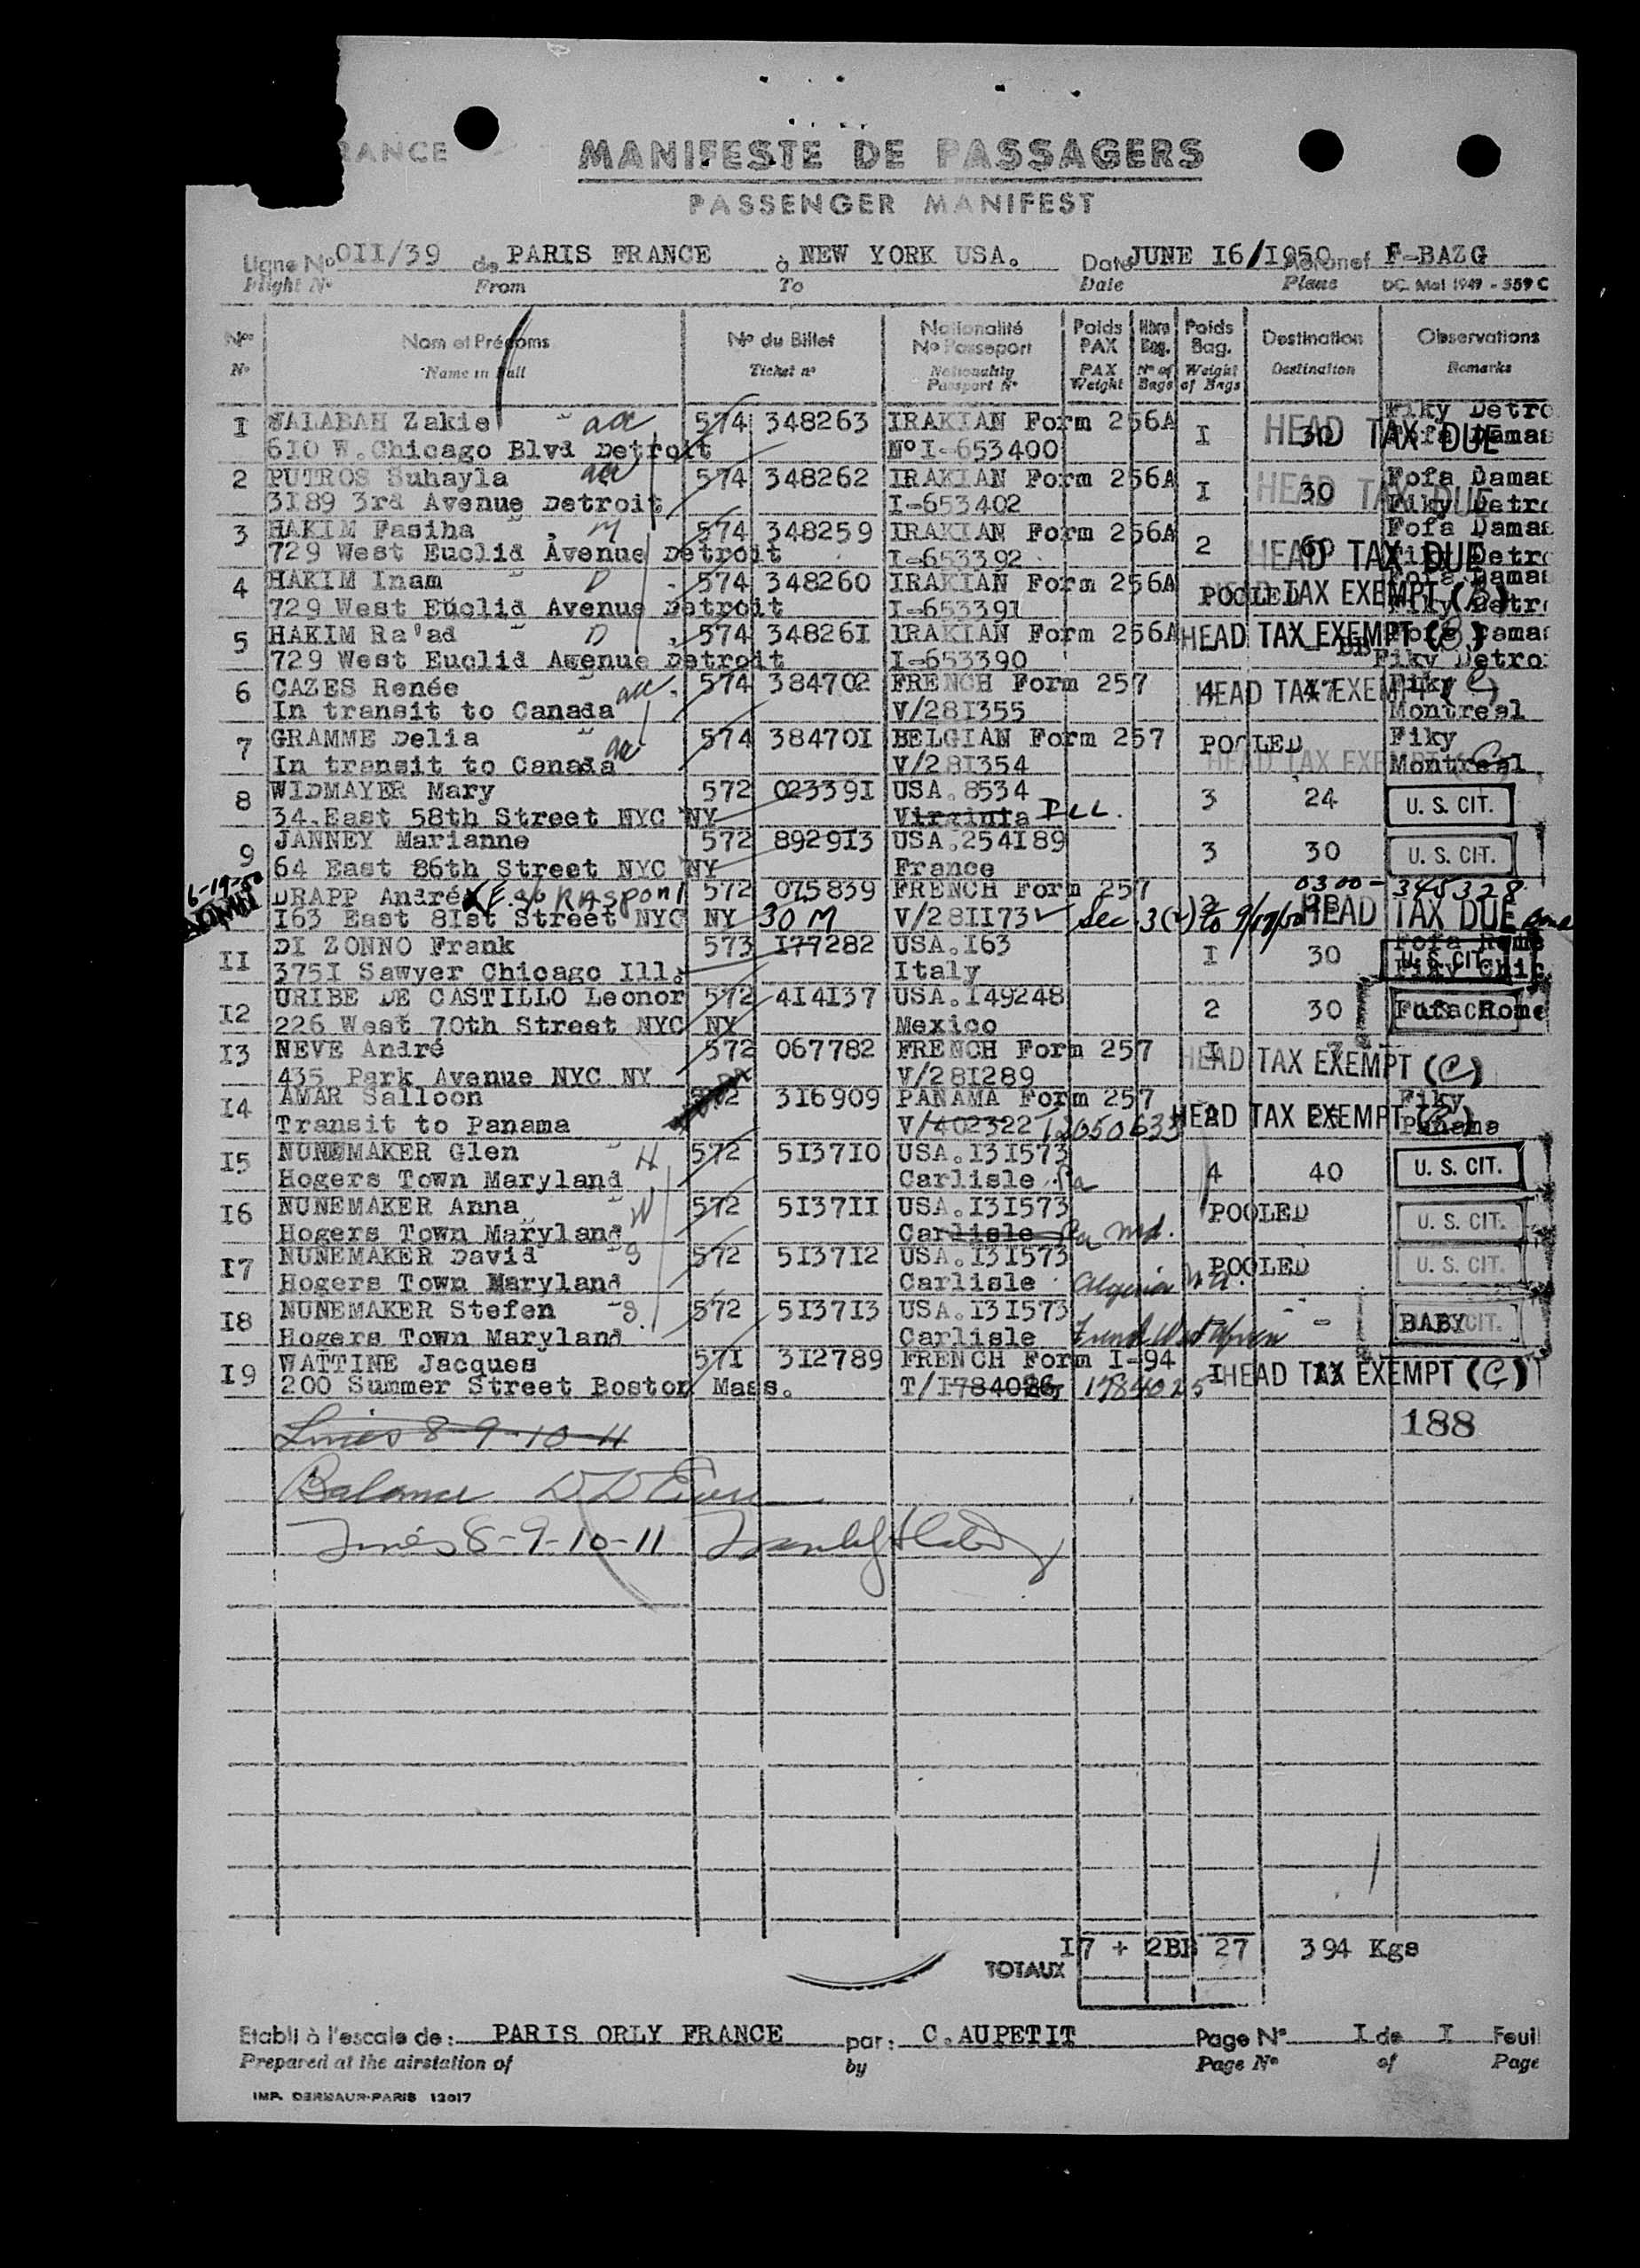 RANCE
MANIFESTE DE PASSAGERS
PASSENGER MANIFEST
Ligne No OII/39 de PARIS FRANCE à NEW YORK USA. Date JUNE I6/I950 Aéronef F-BAZG
Flight No From To Date Plane DC. Mai 1949 - 359 C
Nos Nom et Prénoms No du Billet Nationalité No Passeport Poids PAX Nbre Bag. Poids Bag. Destination Observations
No Name in Full Ticket no Nationality Passport No PAX Weight No of Bags Weight of Bags Destination Remarks
I Zakie 574 348263 IRAKIAN Form 256A I 30 HEAD TAX DUE Fiky Detro
6I0 W.Chicago Blvd Detroit No I-653400
2 PUTROS Suhayla 574 348262 IRAKIAN Form 256A I 30 HEAD TAX DUE Fofa Damas
3I89 3rd Avenue Detroit I-653402 Fiky Detro
3 HAKIM Fasiha M 574 348259 IRAKIAN Form 256A 2 60 HEAD TAX DUE Fofa Damas
729 West Euclid Avenue Detroit I-653392 Detro
4 HAKIM Inam D 574 348260 IRAKIAN Form 256A POOLED HEAD TAX EXEMPT (B)
729 West Euclid Avenue Detroit I-653391
5 HAKIM Ra'ad D 574 34826I IRAKIAN Form 256A HEAD TAX EXEMPT (B)
729 West Euclid Avenue Detroit I-653390 Fiky Detro
6 CAZES Renée 574 384702 FRENCH Form 257 4 47 HEAD TAX EXEMPT (C) Fiky
In transit to Canada V/28I355 Montreal
7 GRAMME Delia 574 38470I BELGIAN Form 257 POOLED Fiky
In transit to Canada V/28I354 HEAD TAX EXEMPT (C) Montreal
8 WIDMAYER Mary 572 02339I USA.8534 3 24 U. S. CIT.
34.East 58th Street NYC NY Virginia ILL.
9 JANNEY Marianne 572 8929I3 USA.254I89 3 30 U. S. CIT.
64 East 86th Street NYC NY France
6-19-50 DRAPP André 572 075839 FRENCH Form 257 2 28 0300-345328
I63 East 8Ist Street NYC NY 30 M V/28II73 Sec 3(2) to 9/17/50 HEAD TAX DUE
II DI ZONNO Frank 573 I77282 USA.I63 I 30 Fofa Rome
375I Sawyer Chicago Ill. Italy U. S. CIT. Fiky Chic
I2 URIBE DE CASTILLO Leonor 572 4I4I37 USA.I49248 2 30 Fofa Rome
226 West 70th Street NYC NY Mexico
I3 NEVE André 572 067782 FRENCH Form 257 I HEAD TAX EXEMPT (C)
435 Park Avenue NYC NY V/28I289
I4 AMAR Salloon 572 3I6909 PANAMA Form 257 Fiky
Transit to Panama V/402322 T2050633 HEAD TAX EXEMPT (C) Panama
I5 NUNEMAKER Glen H 572 5I37I0 USA.I3I573 4 40 U. S. CIT.
Hogers Town Maryland Carlisle Pa
I6 NUNEMAKER Anna W 572 5I37II USA.I3I573 POOLED U. S. CIT.
Hogers Town Maryland Carlisle Pa Md.
I7 NUNEMAKER David S 572 5I37I2 USA.I3I573 POOLED U. S. CIT.
Hogers Town Maryland Carlisle Algeria
I8 NUNEMAKER Stefen S 572 5I37I3 USA.I3I573 - - BABY CIT.
Hogers Town Maryland Carlisle French West Africa
I9 WATTINE Jacques 57I 3I2789 FRENCH Form I-94 I HEAD TAX EXEMPT (C)
200 Summer Street Boston Mass. T/I784026 1784025
Lines 8-9-10-11 188
Balance
Lines 8-9-10-11
TOTAUX I7 + 2BB 27 394 Kgs
Etabli à l'escale de: PARIS ORLY FRANCE par: C.AUPETIT Page No I de I Feuil
Prepared at the airstation of by Page No of Page
IMP. DERMAUR-PARIS 12017